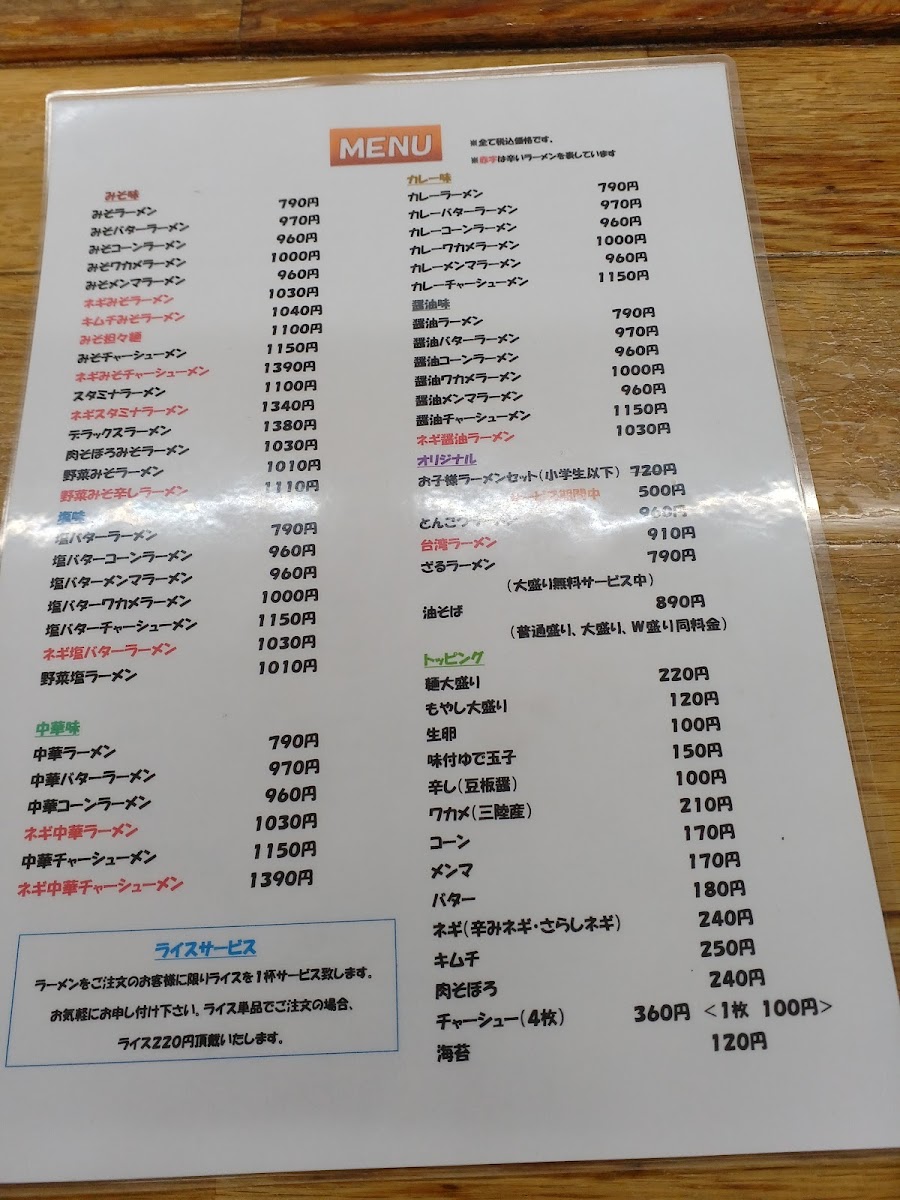 MENU
※全て税込価格です。
※赤字は辛いラーメンを表しています
みそ味
みそラーメン 790円
みそバターラーメン 970円
みそコーンラーメン 960円
みそワカメラーメン 1000円
みそメンマラーメン 960円
ネギみそラーメン 1030円
キムチみそラーメン 1040円
みそ担々麺 1100円
みそチャーシューメン 1150円
ネギみそチャーシューメン 1390円
スタミナラーメン 1100円
ネギスタミナラーメン 1340円
デラックスラーメン 1380円
肉そぼろみそラーメン 1030円
野菜みそラーメン 1010円
野菜みそ辛しラーメン 1110円
塩味
塩バターラーメン 790円
塩バターコーンラーメン 960円
塩バターメンマラーメン 960円
塩バターワカメラーメン 1000円
塩バターチャーシューメン 1150円
ネギ塩バターラーメン 1030円
野菜塩ラーメン 1010円
中華味
中華ラーメン 790円
中華バターラーメン 970円
中華コーンラーメン 960円
ネギ中華ラーメン 1030円
中華チャーシューメン 1150円
ネギ中華チャーシューメン 1390円
ライスサービス
ラーメンをご注文のお客様に限りライスを1杯サービス致します。
お気軽にお申し付け下さい。ライス単品でご注文の場合、
ライス220円頂戴いたします。
カレー味
カレーラーメン 790円
カレーバターラーメン 970円
カレーコーンラーメン 960円
カレーワカメラーメン 1000円
カレーメンマラーメン 960円
カレーチャーシューメン 1150円
醤油味
醤油ラーメン 790円
醤油バターラーメン 970円
醤油コーンラーメン 960円
醤油ワカメラーメン 1000円
醤油メンマラーメン 960円
醤油チャーシューメン 1150円
ネギ醤油ラーメン 1030円
オリジナル
お子様ラーメンセット(小学生以下) 720円
サービス期間中 500円
とんこつラーメン 960円
台湾ラーメン 910円
ざるラーメン 790円
(大盛り無料サービス中)
油そば 890円
(普通盛り、大盛り、W盛り同料金)
トッピング
麺大盛り 220円
もやし大盛り 120円
生卵 100円
味付ゆで玉子 150円
辛し(豆板醤) 100円
ワカメ(三陸産) 210円
コーン 170円
メンマ 170円
バター 180円
ネギ(辛みネギ・さらしネギ) 240円
キムチ 250円
肉そぼろ 240円
チャーシュー(4枚) 360円 <1枚 100円>
海苔 120円